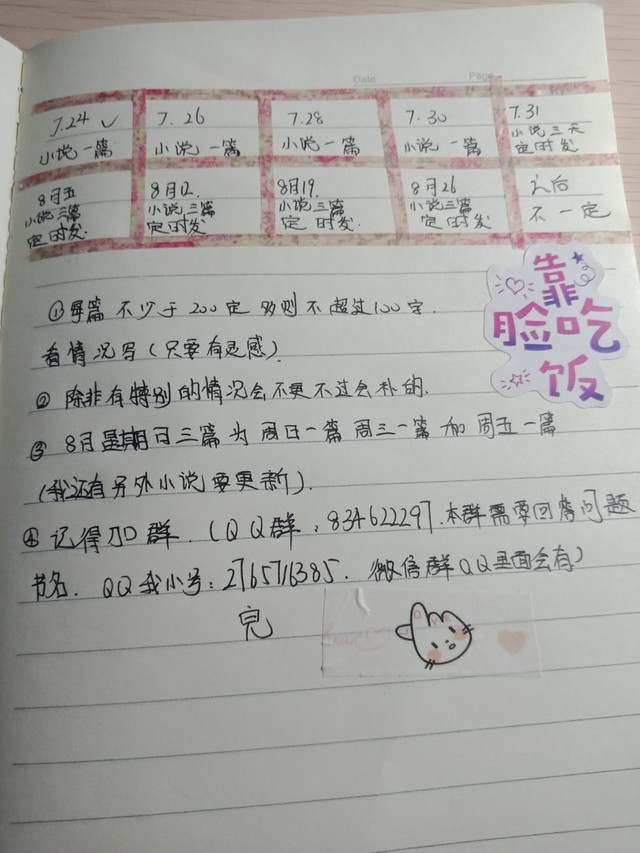 Date
Page
7.24 ✓
小说一篇
7.26
小说一篇
7.28
小说一篇
7.30
小说一篇
7.31
小说三天
定时发
8月五
小说三篇
定时发.
8月12.
小说三篇
定时发
8月19.
小说三篇
定时发.
8月26
小说三篇
定时发
后
不一定
靠
脸吃
饭
①每篇不少于200字 多则不超过100字.
看情况写(只要有灵感).
② 除非有特别的情况会不更不过会补的.
③ 8月星期日三篇为周日一篇 周三一篇 和 周五一篇
(我还有另外小说要更新).
④ 记得加群.(QQ群:834622297.本群需要回答问题
书名. QQ我小号:2765716385. 微信群QQ里面会有)
完